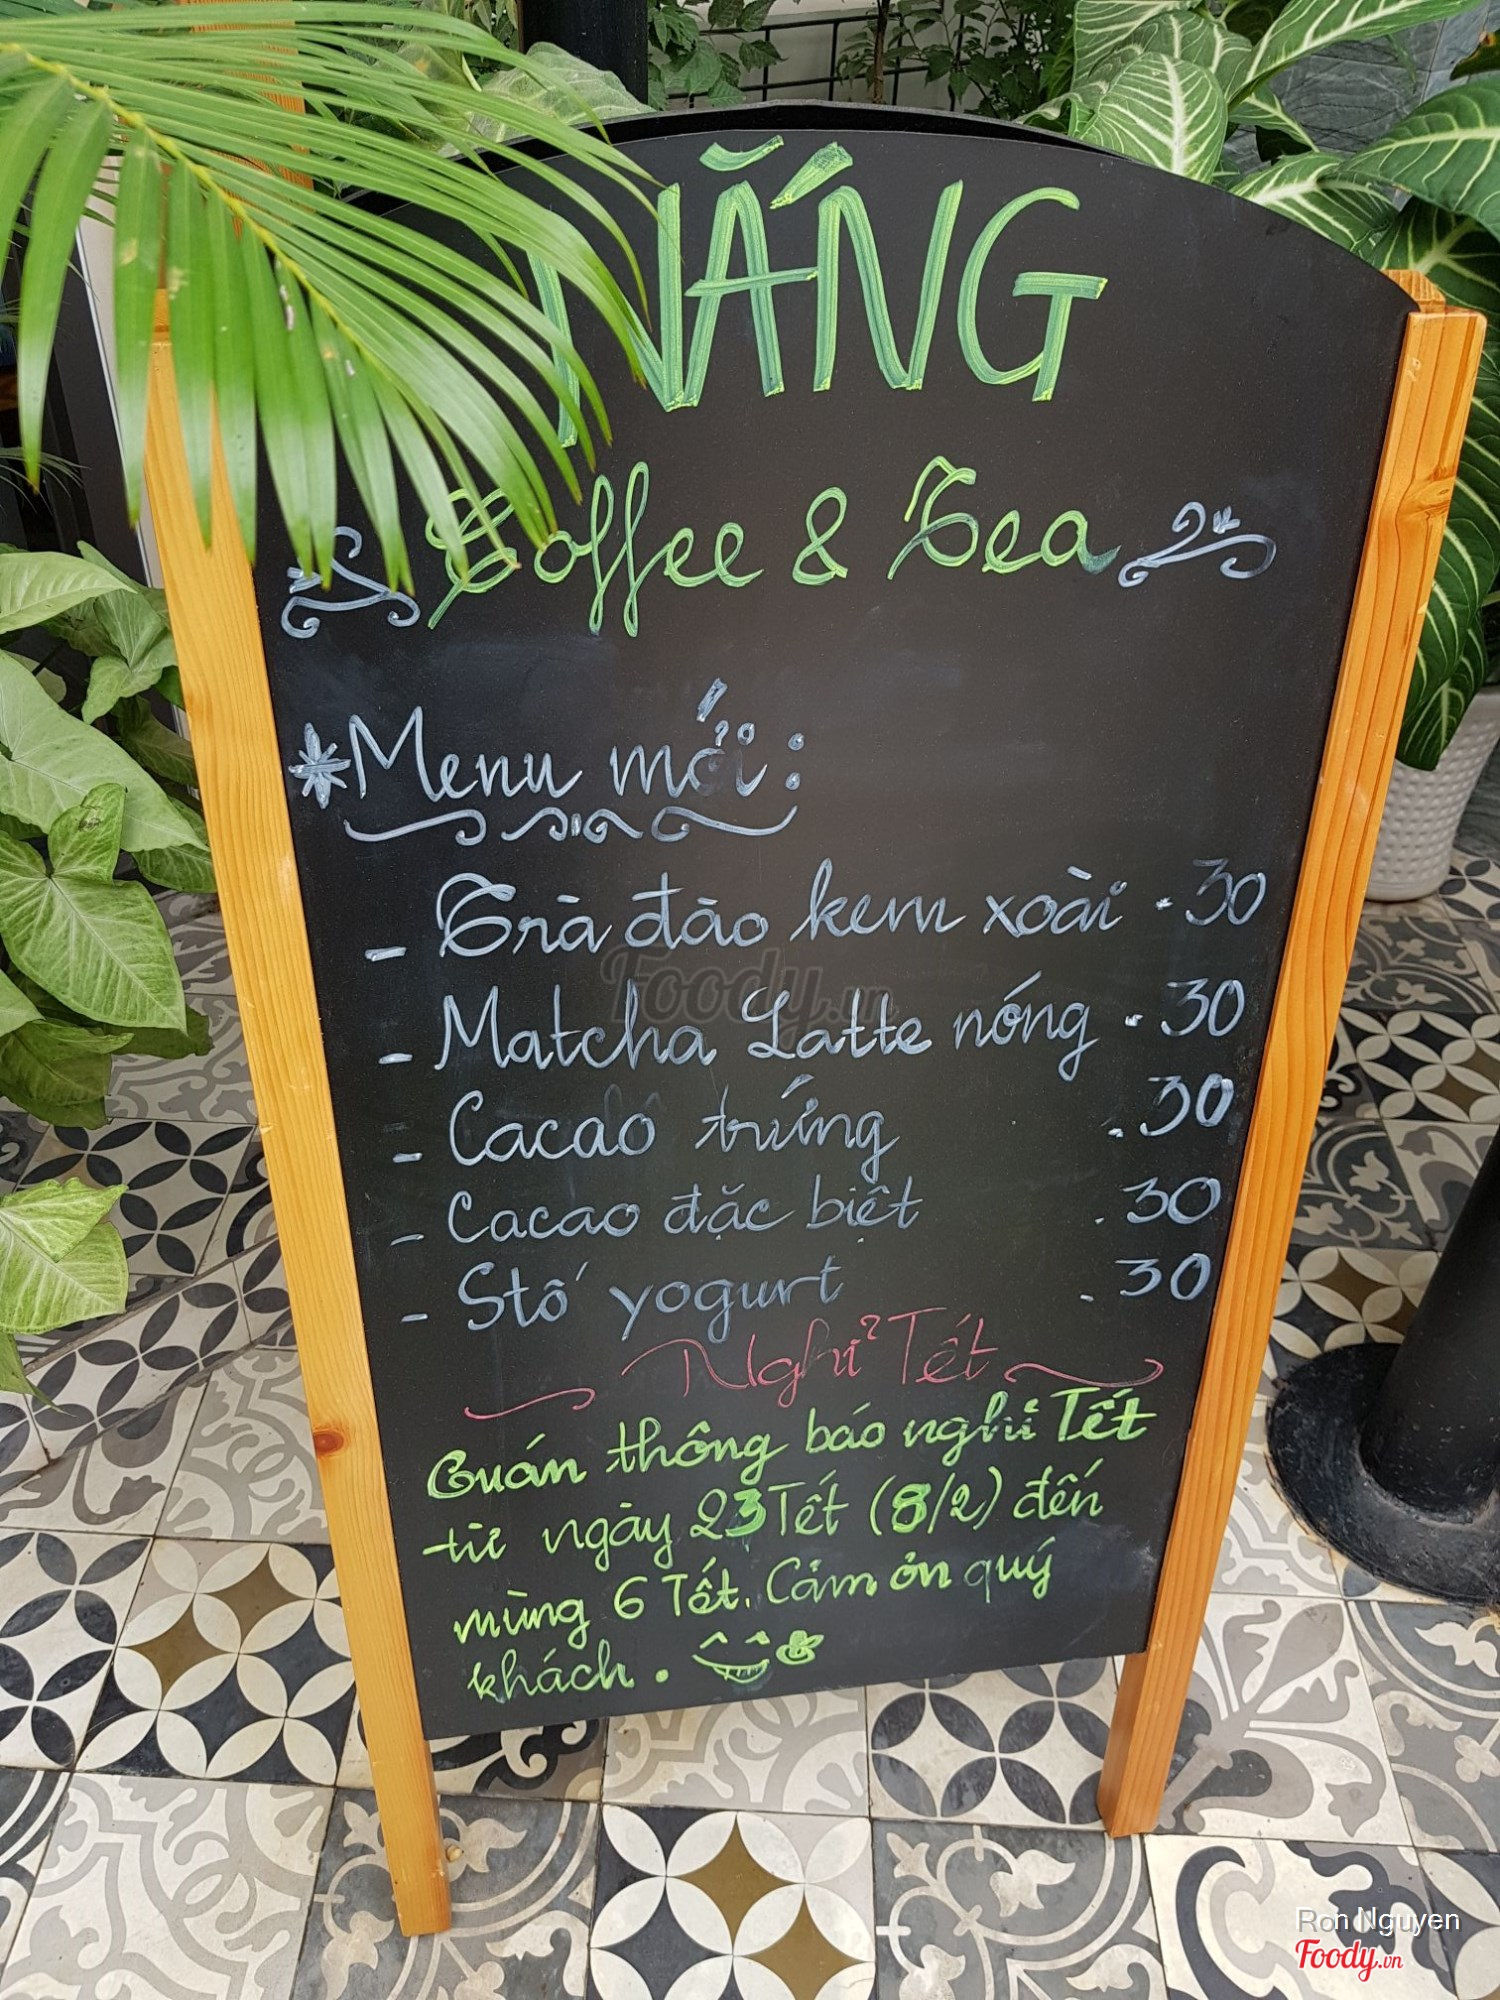 NẮNG
Coffee & Tea
*Menu mới:
- Trà đào kem xoài . 30
- Matcha Latte nóng . 30
- Cacao trứng . 30
- Cacao đặc biệt . 30
- Stố yogurt . 30
Nghỉ Tết
Quán thông báo nghỉ Tết
từ ngày 23 Tết (8/2) đến
mùng 6 Tết. Cảm ơn quý
khách.
Foody.vn
Ron Nguyen
Foody.vn